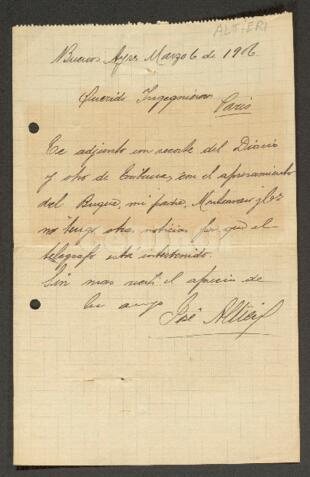 ALTIERI
Buenos Ayres Marzo 6 de 1906
Querido Ingegnieros
Paris
Te adjunto un recorte del Diario
y otro de con el apresamiento
del Buque, mi padre, Montenevi y Cia
no tengo otra noticia por que el
telegrafo está intestenido.
Sin mas recibi el aprecio de
tu amigo
José Altieri